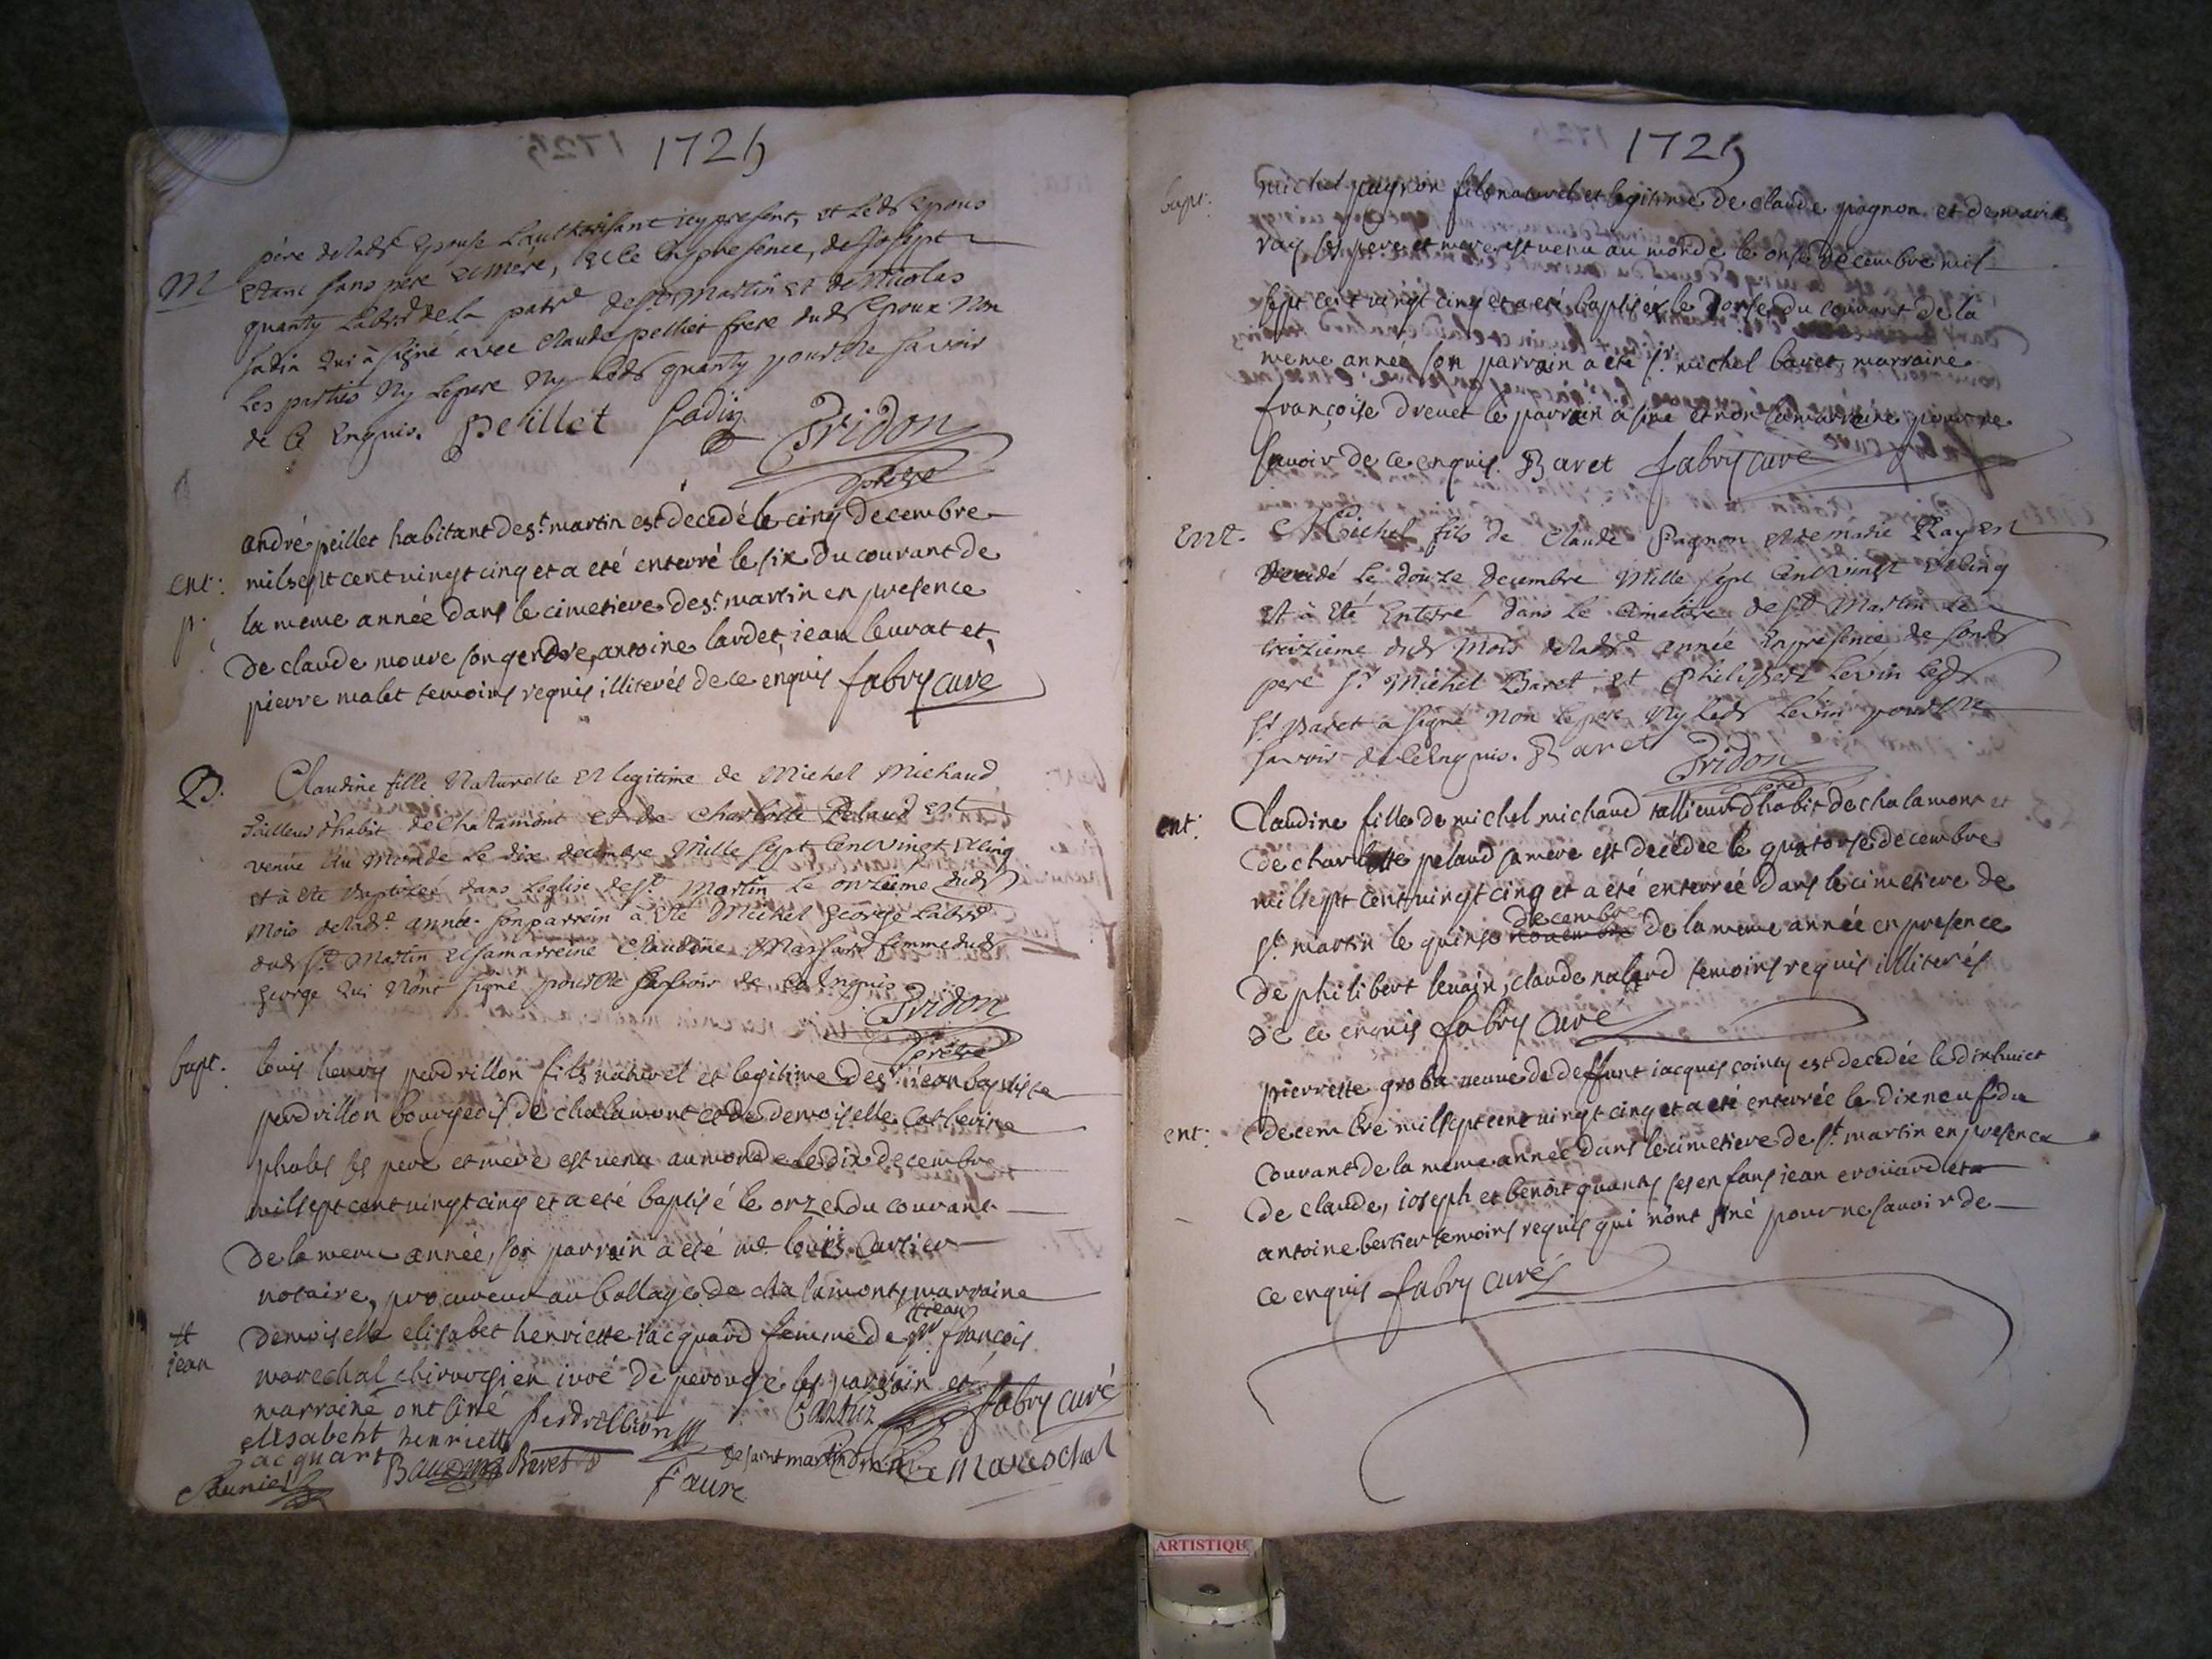 1725
M
père deladte Epouse Lauthorisant icy present, et ledt Epous
Etant sans père Et mère, et Ce En presence, de Joseph
quanty Labr de la parse de st Martin Et de Nicolas
Sadin Qui à signé avec Claude pelliet frere dudt Epoux Non
Les parties Ny Lepere Ny Ledt quanty pour Ne savoir
de Ce Enquis. Peillet Sadin Pridon
prêtre
ent:
p.
andré peillet habitant de st martin est decedé le cinq decembre
mil sept cent vingt cinq et a eté enterré le six du courant de
la meme année dans le cimetiere de st martin en presence
de claude mouve son gendre, antoine lardet, jean leurat et
pierre malet temoins requis illiterés de ce enquis fabry curé
B.
Claudine fille Naturelle Et legitime de Michel Michaud
Tailleur d'habit de Chalamont et de Charlotte Pelaud Est
venue Au Monde Le dix decembre Mille sept Cent Vingt Et Cinq
et à Eté Baptizeé dans Leglise de st Martin Le onzieme dudt
Mois deladte année. son parrein à Eté Michel George Labr
dudt st Martin Et sa marreine Claudine Massard femme dudt
George Qui N'ont signé pour Ne sçavoir de Ce Enquis
Pridon
prêtre
bapt.
louis henry perdrillon fils naturel et legitime de sr jean baptiste
perdrillon bourgeois de chalamont et de demoiselle Catherine
phales ses pere et mere est venu au monde le dix decembre
mil sept cent vingt cinq et a eté baptisé le onze du courant
de la meme année, son parrain a eté me louis Cartier
notaire, procureur au ballage de chalamont, marraine
jean
demoiselle elisabet henriette jacquard femme de sr françois
jean
marechal chirurgien juré de perouge les parrain et
marraine ont siné Perdrillion Cartier fabry curé
elisabeht henriette
jacquart Baret de saint martin Mareschal
Saunier faure
1725
bapt:
michel pagnon fils naturel et legitime de claude pagnon et de marie
ray ses pere et mere est venu au monde le onse decembre mil
sept cent vingt cinq et a eté baptisé le dorse du courant de la
meme année son parrain a eté sr michel baret, marraine
françoise drevet le parrain a siné et non la marraine pour ne
savoir de ce enquis. Baret fabry curé
Ent.
Michel fils de Claude Pagnon Et de marie Ray Est
decedé Le douze decembre Mille sept Cent Vingt Et Cinq
Et à Eté Enterré dans Le Cimetiere de st Martin Le
treizieme dudt Mois deladte année En presence de sondt
pere sr Michel Baret Et Philibert Levin Ledt
sr Baret a signé Non Le pere Ny Ledt Levin pour Ne
savoir de Ce Enquis. Baret Pridon
ent:
Claudine fille de michel michaud tallieur d'habit de chalamont et
de charlotte pelaud sa mere est decedée le quatorse decembre
mil sept cent vingt cinq et a eté enterreé dans le cimetiere de
decembre
st martin le quinse novembre de la meme année en presence
de philibert levain, claude nalard temoins requis illiterés
de ce enquis fabry curé
ent:
pierrette groba veuve de deffunt jacques cointy est decedée le dix huict
decembre mil sept cent vingt cinq et a eté enterrée le dix neuf du
courant de la meme année dans le cimetiere de st martin en presence
de claude, joseph et benoit quanty ses enfans jean erouard et
antoine bertier temoins requis qui n'ont siné pour ne savoir de
ce enquis fabry curé
ARTISTIQU